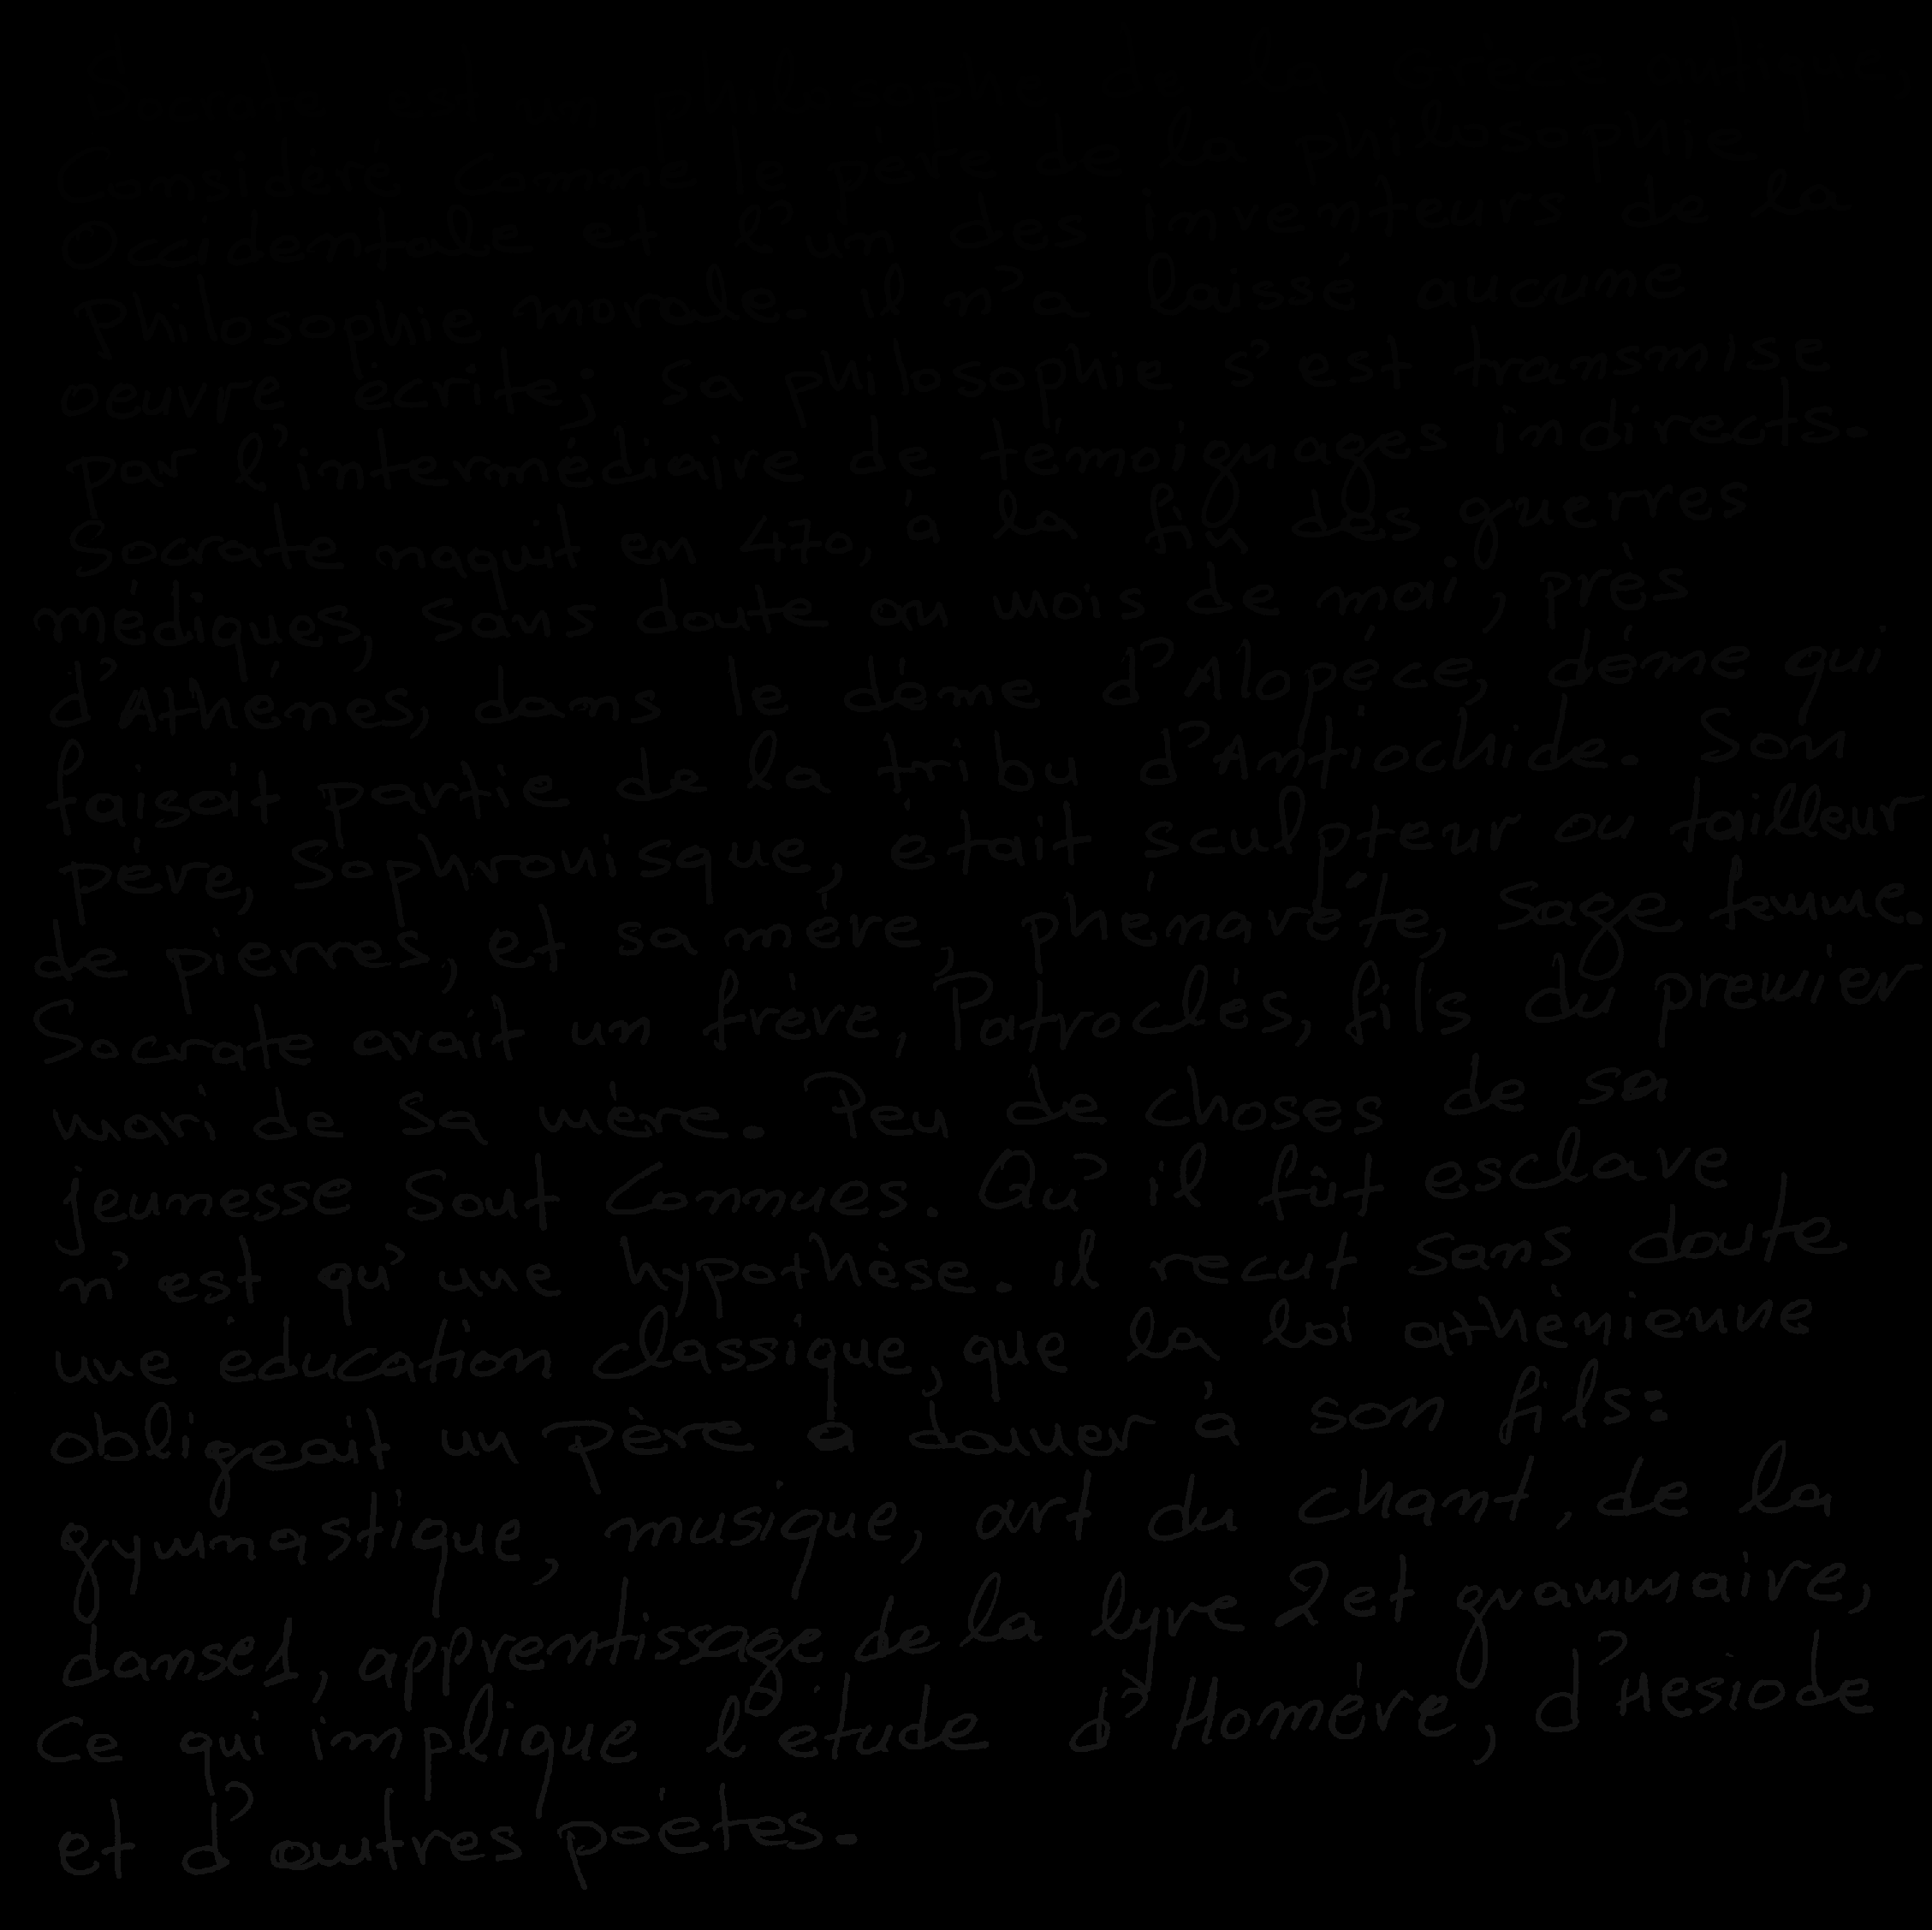 Socrate est un philosophe de la Grèce antique,
Considéré comme le père de la philosophie
Occidentale et l'un des inventeurs de la
Philosophie morale. il n'a laissé aucune
oeuvre écrite; sa philosophie s'est transmise
par l'intermédiaire de témoignages indirects.
Socrate naquit en 470, à la fin des guerres
médiques, sans doute au mois de mai, près
d'Athénes, dans le dème d'Alopéce, dème qui
faisait partie de la tribu d'Antiochide. Son
père, Sophronisque, était sculpteur ou tailleur
de pierres, et sa mère, phénarète, sage femme.
Socrate avait un frère, Patroclès, fils du premier
mari de sa mère. Peu de choses de sa
jeunesse Sont Connues. Qu'il fût esclave
n'est qu'une hypothèse. il recut sans doute
une éducation classique, que la loi athénienne
obligeait un père à donner à son fils:
gymnastique, musique, art du chant, de la
danse1, apprentissage de la lyre 2 et grammaire,
Ce qui implique l'étude d'Homére, d'Hesiode
et d'autres poètes.